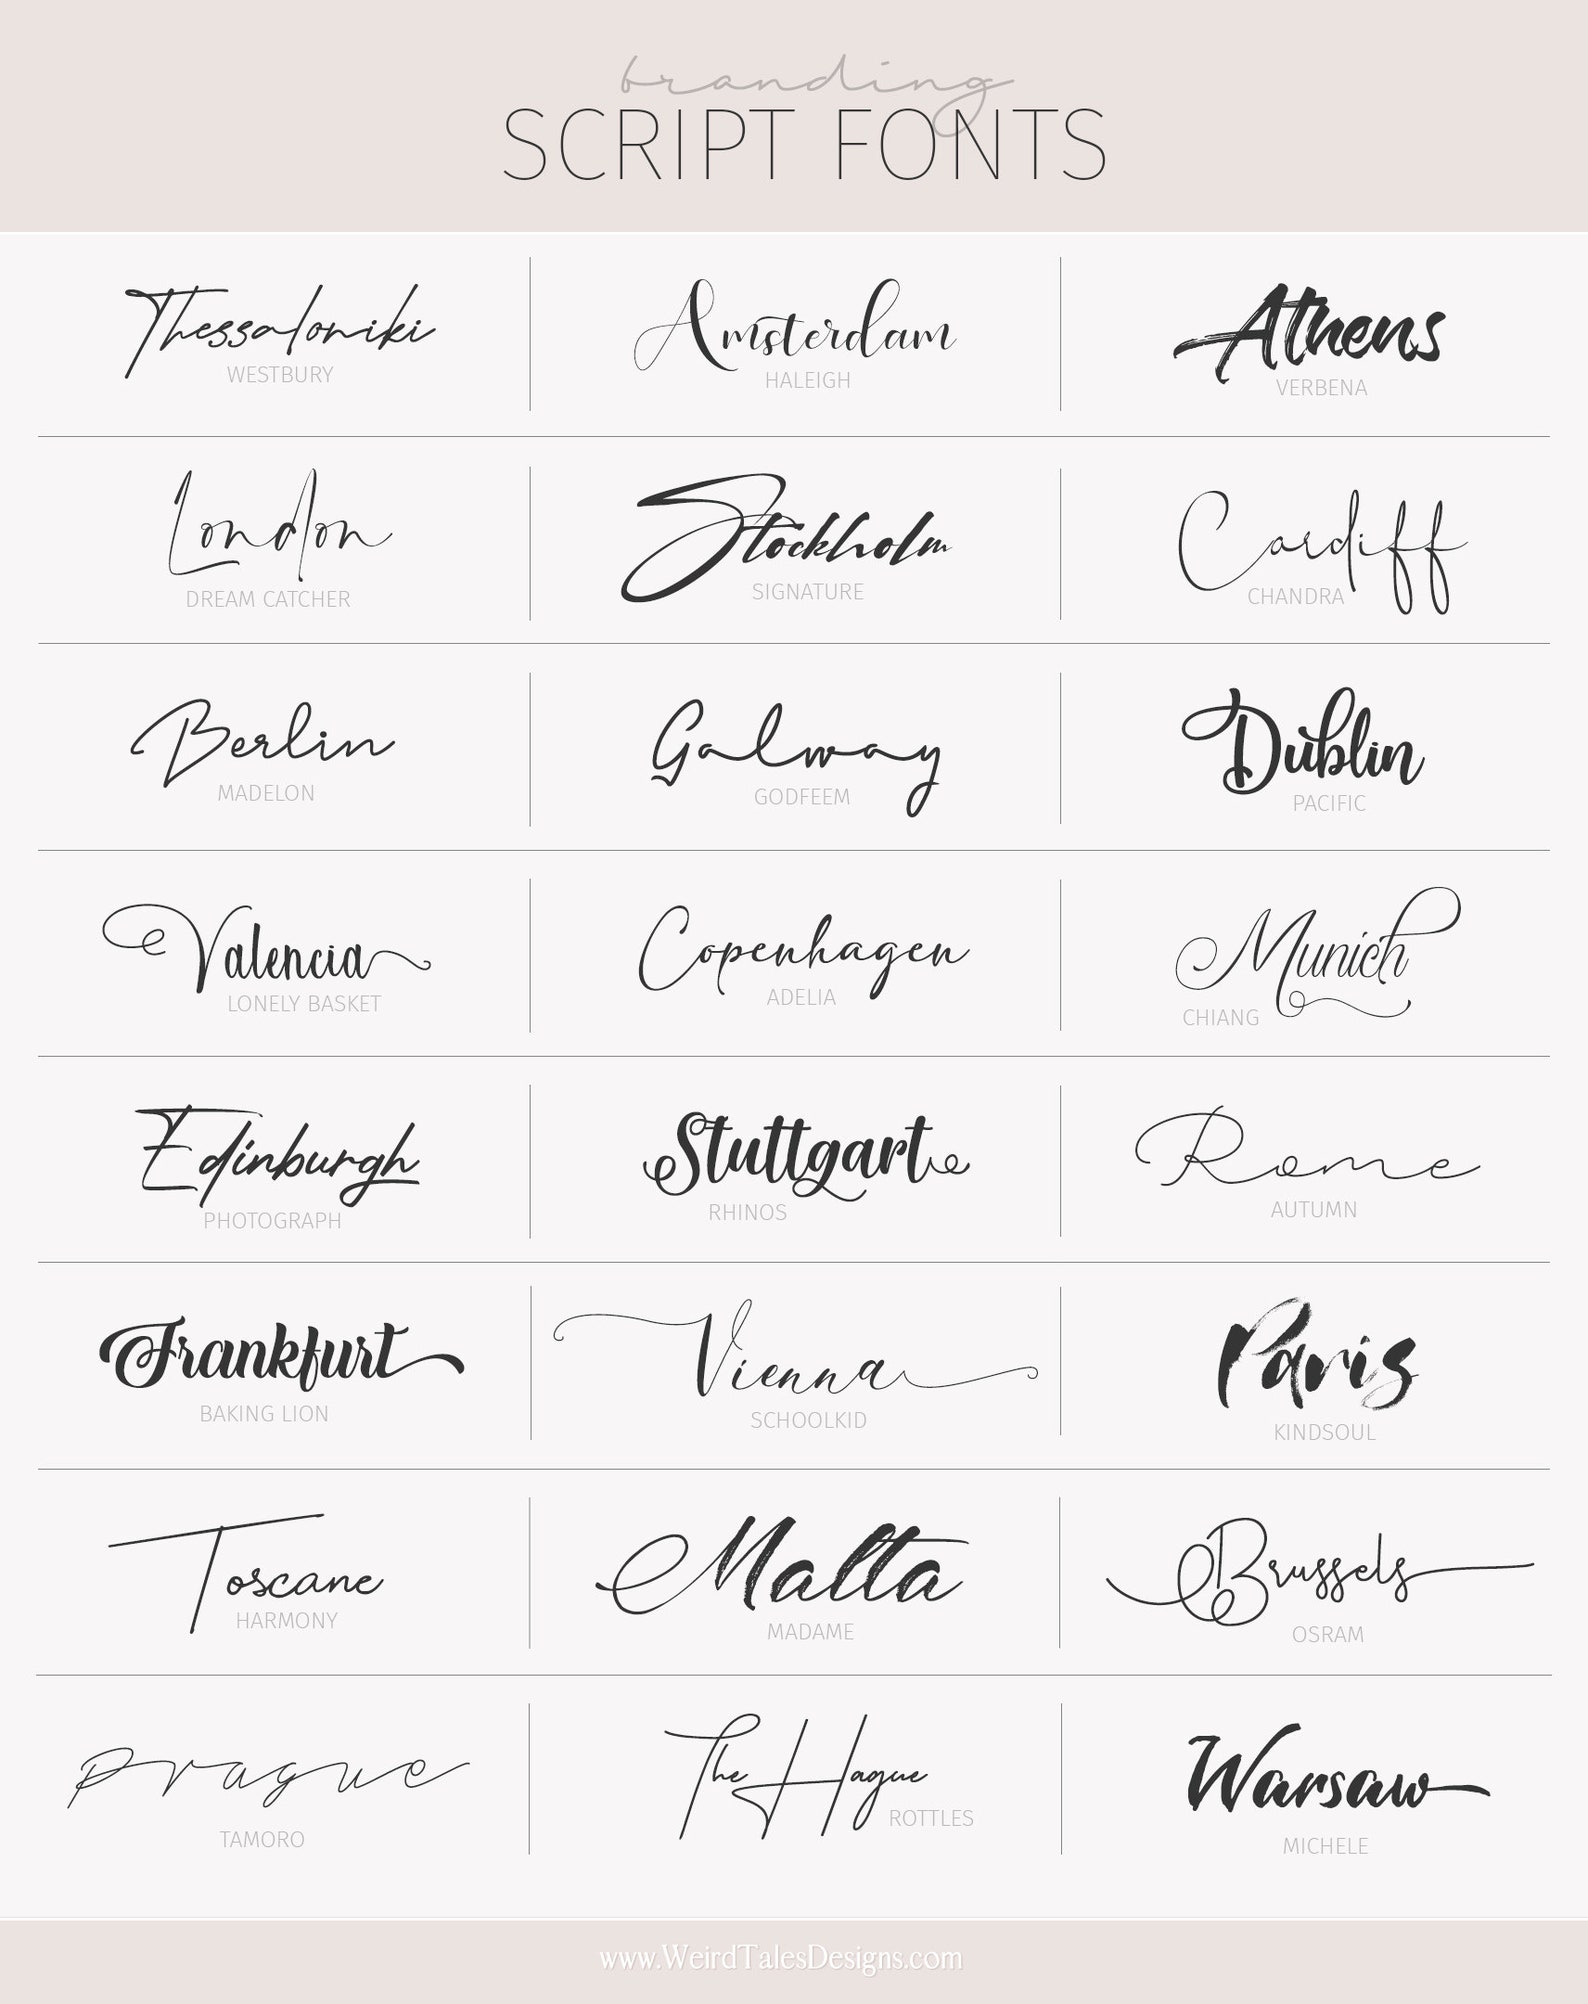 branding
SCRIPT FONTS
Thessaloniki
WESTBURY
Amsterdam
HALEIGH
Athens
VERBENA
London
DREAM CATCHER
Stockholm
SIGNATURE
Cardiff
CHANDRA
Berlin
MADELON
Galway
GODFEEM
Dublin
PACIFIC
Valencia
LONELY BASKET
Copenhagen
ADELIA
Munich
CHIANG
Edinburgh
PHOTOGRAPH
Stuttgart
RHINOS
Rome
AUTUMN
Frankfurt
BAKING LION
Vienna
SCHOOLKID
Paris
KINDSOUL
Toscane
HARMONY
Malta
MADAME
Brussels
OSRAM
prague
TAMORO
The Hague
ROTTLES
Warsaw
MICHELE
www.WeirdTalesDesigns.com